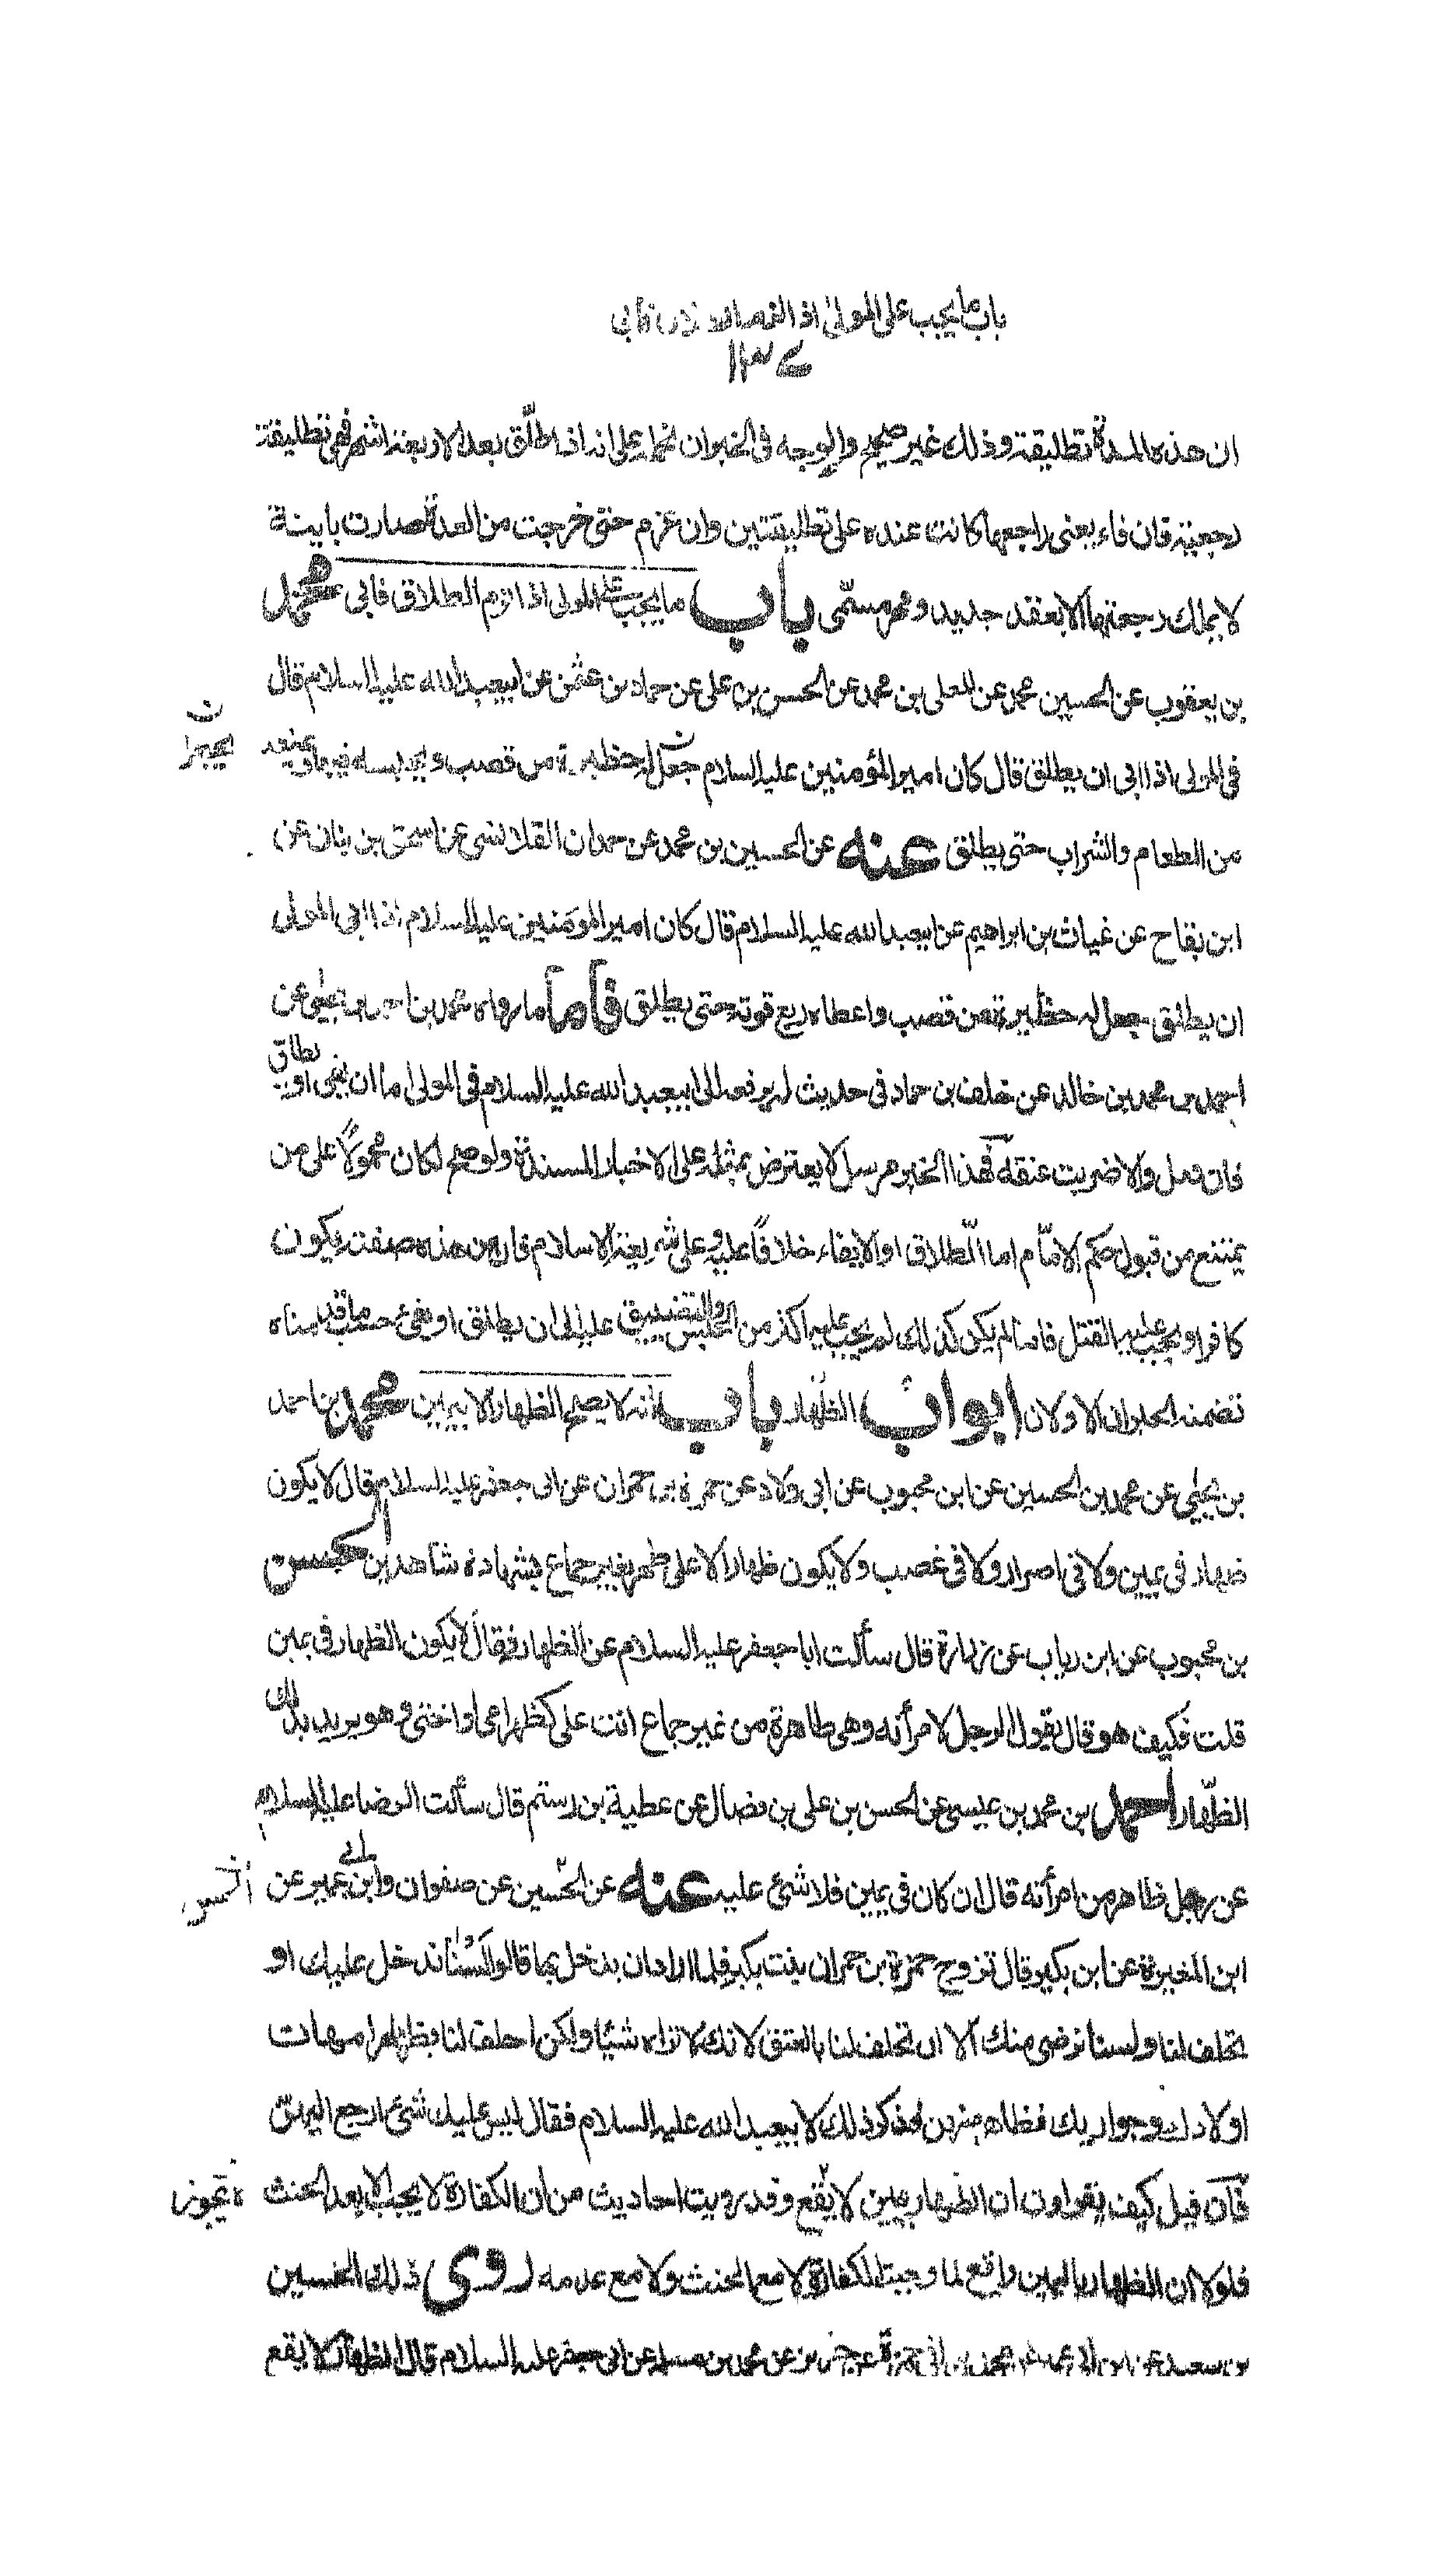 باب ما يجب على المولى اذا الزم فابى
ان هذه المدة تطليقة وذلك غير صحيح والوجه فى الخبر ان نحمله على انه اذا طلّق بعد الاربعة اشهر فهى تطليقة
رجعية فان فاء يعنى راجعها كانت عنده على تطليقتين وان عزم حتى خرجت من العدة صارت باينة
لا يملك رجعتها الا بعقد جديد ومهر مسمّى باب ما يجب على المولى اذا الزم الطلاق فابى محمد
بن يعقوب عن الحسين محمد عن المعلى بن محمد عن الحسن بن على عن حماد بن عثمن عن ابيعبدالله عليه السلام قال
فى المولى اذا ابى ان يطلق قال كان امير المؤمنين عليه السلام جعل له حظيرة من قصب ويحبسه فيها ويمنعه
من الطعام والشراب حتى يطلق عنه عن الحسين بن محمد عن حمدان القلانسى عن اسحق بن بنان عن
ابن بقاح عن غياث بن ابراهيم عن ابيعبدالله عليه السلام قال كان امير المؤمنين عليه السلام اذا ابى المولى
ان يطلق جعل له حظيرة من قصب واعطاه ربع قوته حتى يطلق فأما ما رواه محمد بن احمد بن يحيى عن
احمد بن محمد بن خالد عن خلف بن حماد فى حديث له يرفعه الى ابيعبدالله عليه السلام فى المولى اما ان يفئ او يطلق
فان فعل والا ضربت عنقه فهذا الخبر مرسل لا يعترض بمثله على الاخبار المسندة ولو صح لكان محمولا على من
يمتنع من قبول حكم الامام اما الطلاق او الايفاء خلافًا عليه وعلى شريعة الاسلام فان من هذه صفته يكون
كافرا ويجب عليه القتل فاما لم يكن كذلك لم يجب عليه اكثر من الحبس والتضييق عليه الى ان يطلق او يفئ حسب ما قدمناه
تضمنه الخبران الاولان ابواب الظهار باب انه لا يصح الظهار الا بيمين محمد بن احمد
بن يحيى عن محمد بن الحسين عن ابن محبوب عن ابى ولاد عن حمزة بن حمران عن ابى جعفر عليه السلام قال لا يكون
ظهار فى يمين ولا فى اضرار ولا فى غضب ولا يكون ظهارا الا على طهر بغير جماع بشهادة شاهدين الحسن
بن محبوب عن ابن رياب عن زرارة قال سألت ابا جعفر عليه السلام عن الظهار فقال لا يكون الظهار فى يمين
قلت فكيف هو قال يقول الرجل لامرأته وهى طاهرة من غير جماع انت على كظهر امى او اختى وهو يريد بذلك
الظّهار احمد بن محمد بن عيسى عن الحسن بن على بن فضال عن عطية بن رستم قال سألت الرضا عليه السلام
عن رجل ظاهر من امرأته قال ان كان فى يمين فلا شئ عليه عنه عن الحسين عن صفوان وابن ابى عمير عن
ابن المغيرة عن ابن بكير قال تزوج حمزة بن حمران بنت بكير فلما اراد ان يدخل بها قالوا لسنا ندخل عليك او
تحلف لنا ولسنا نرضى منك الا ان تحلف لنا بالعتق لانك لا تراه شيئا ولكن احلف لنا بظهار امهات
اولادك وجواريك فظاهر منهن ثم ذكر ذلك لابيعبدالله عليه السلام فقال ليس عليك شئ ارجع اليهن
فان قيل كيف يقولون ان الظهار بيمين لا يقع وقد رويت احاديث من ان الكفارة لا يجب الا بعد الحنث
فلولا ان الظهار باليمين واقع لما وجبت الكفارة لا مع الحنث ولا مع عدمه روى ذلك الحسين
بن سعيد عن ابن ابى عمير عن محمد بن ابى حمزة عن حريز عن محمد بن مسلم عن ابى جعفر عليه السلام قال الظهار لا يقع